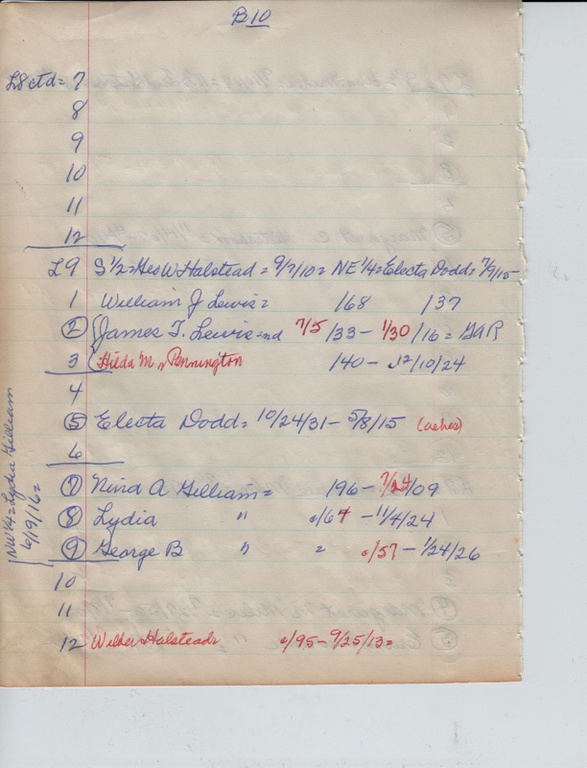 B10
L8 ctd = 7
8
9
10
11
12
L9 S 1/2 = Geo W Halstead = 9/7/10 = NE 1/4 = Electa Dodd = 7/9/15
1 William J Lewis = 168 137
2 James T. Lewis = nd 7/5/33 - 1/30/16 = GAR
3 Hilda M Pennington 140 - 12/10/24
4
5 Electa Dodd = 10/24/31 - 5/8/15 (ashes)
6
NW 1/4 = Lydia Gilliam
6/19/16 =
7 Nina A Gilliam = 196 - 7/24/09
8 Lydia " 0/64 - 11/4/24
9 George B " = 0/57 - 1/24/26
10
11
12 Wilber Halstead = 0/95 - 9/25/13 =